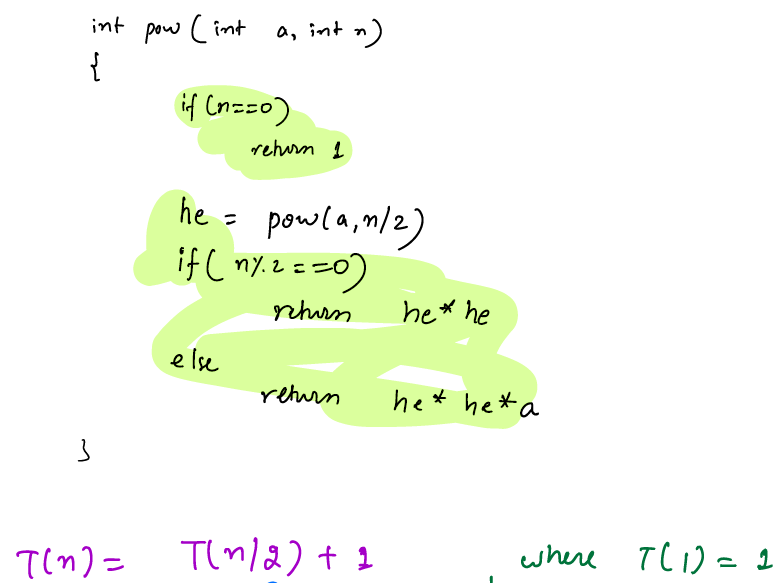 int pow (int a, int n)
{
if (n==0)
return 1
he = pow(a, n/2)
if( n%2 ==0)
return he* he
else
return he* he*a
}
T(n) = T(n/2) + 1 where T(1) = 1